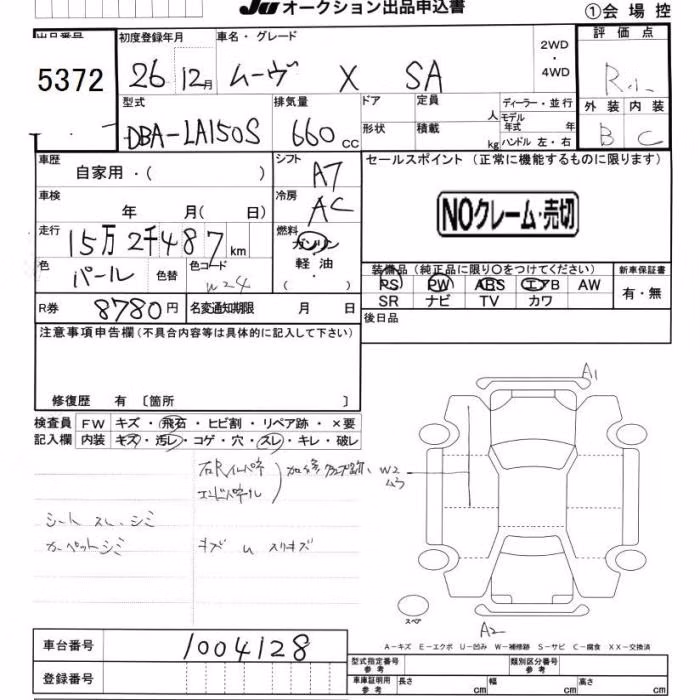 JU オークション出品申込書
①会場控
出品番号 初度登録年月 車名・グレード 2WD・4WD 評価点
5372 26 12月 ムーヴ X SA R.1.
型式 排気量 ドア 定員 人 ディーラー・並行 外装 内装
DBA-LA150S 660cc 形状 積載 kg モデル年式 年 B C
ハンドル 左・右
車歴 自家用・( ) シフト A7 セールスポイント (正常に機能するものに限ります)
車検 年 月( 日) 冷房 AC NOクレーム・売切
走行 15万2千487km 燃料 ガソリン
色 パール 色替 色コード W24 軽油 ・ ( )
装備品 (純正品に限り○をつけてください) 新車保証書
PS PW ABS エアB AW 有・無
SR ナビ TV カワ
R券 8780円 名変通知期限 月 日 後日品
注意事項申告欄 (不具合内容等は具体的に記入して下さい)
修復歴 有 〔箇所 〕
検査員 FW キズ・飛石・ヒビ割・リペア跡・×要
記入欄 内装 キズ・汚レ・コゲ・穴・スレ・キレ・破レ
A1
エンドパネル
W2
ムラ
シート スレ、シミ
カーペットシミ
キズ U スリキズ
スペア
A2
A-キズ E-エクボ U-凹み W-補修跡 S-サビ C-腐食 XX-交換済
車台番号 1004128
型式指定番号 参考 類別区分番号 参考
登録番号
車庫証明用 参考 長さ cm 幅 cm 高さ cm